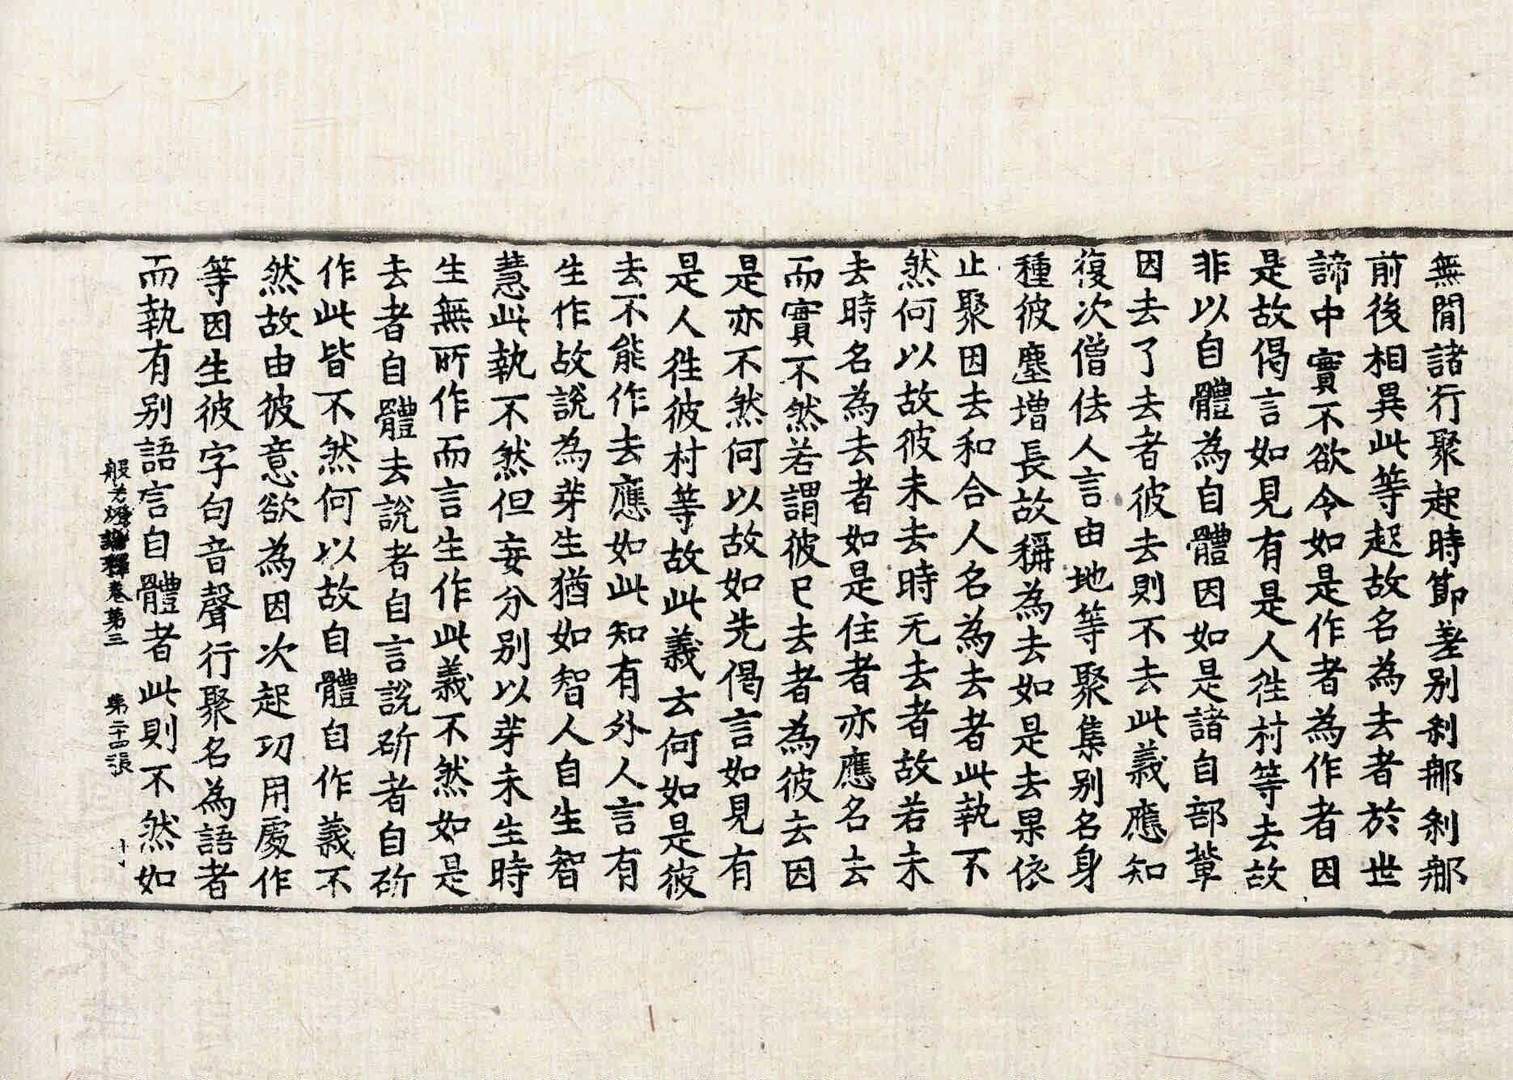 無閒諸行聚起時節差別刹那刹那
前後相異此等起故名為去者於世
諦中實不欲令如是作者為作者因
是故偈言如見有是人徃村等去故
非以自體為自體因如是諸自部輩
因去了去者彼去則不去此義應知
復次僧佉人言由地等聚集别名身
種彼塵增長故稱為去如是去果依
止聚因去和合人名為去者此執不
然何以故彼未去時无去者故若未
去時名為去者如是住者亦應名去
而實不然若謂彼已去者為彼去因
是亦不然何以故如先偈言如見有
是人徃彼村等故此義云何如是彼
去不能作去應如此知有外人言有
生作故說為芽生猶如智人自生智
慧此執不然但妄分别以芽未生時
生無所作而言生作此義不然如是
去者自體去說者自言說斫者自斫
作此皆不然何以故自體自作義不
然故由彼意欲為因次起功用處作
等因生彼字句音聲行聚名為語者
而執有别語言自體者此則不然如
般若燈論釋卷第三 第二十四張